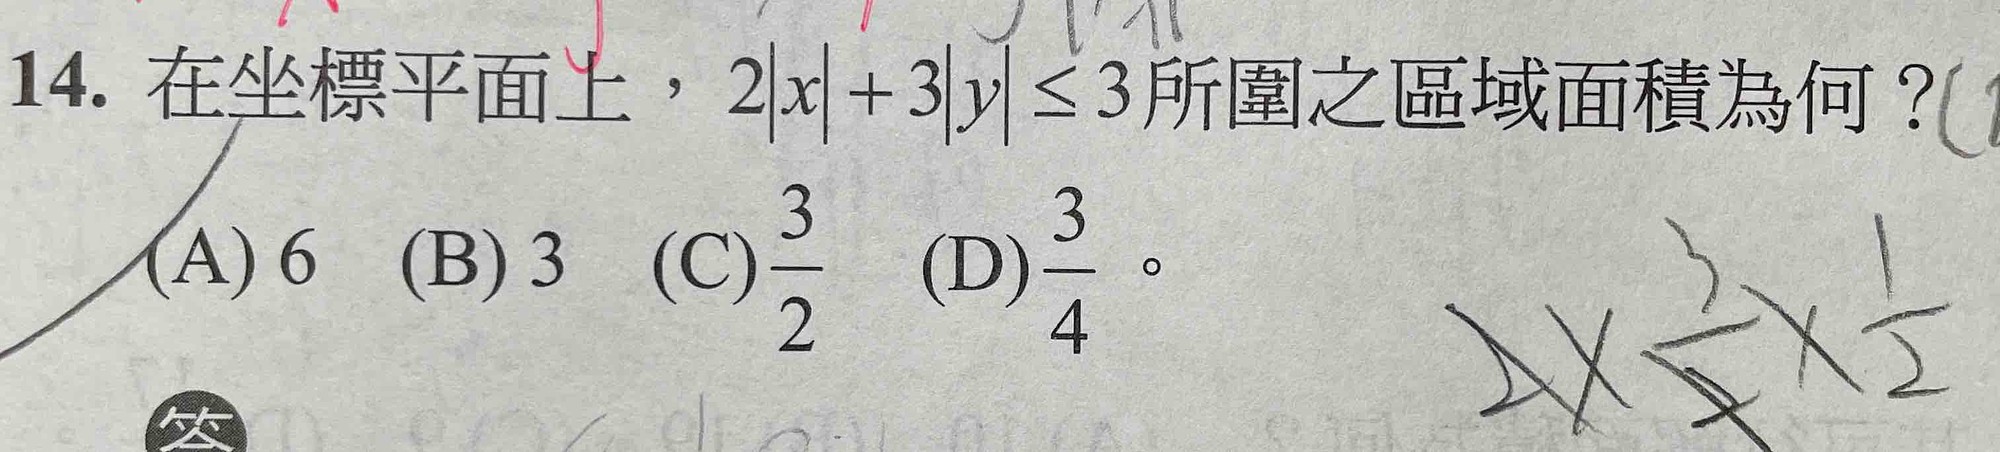 14. 在坐標平面上，2|x| + 3|y| ≤ 3所圍之區域面積為何？(
(A) 6 (B) 3 (C) 3/2 (D) 3/4 。
2 × 3/2 × 1/2
答